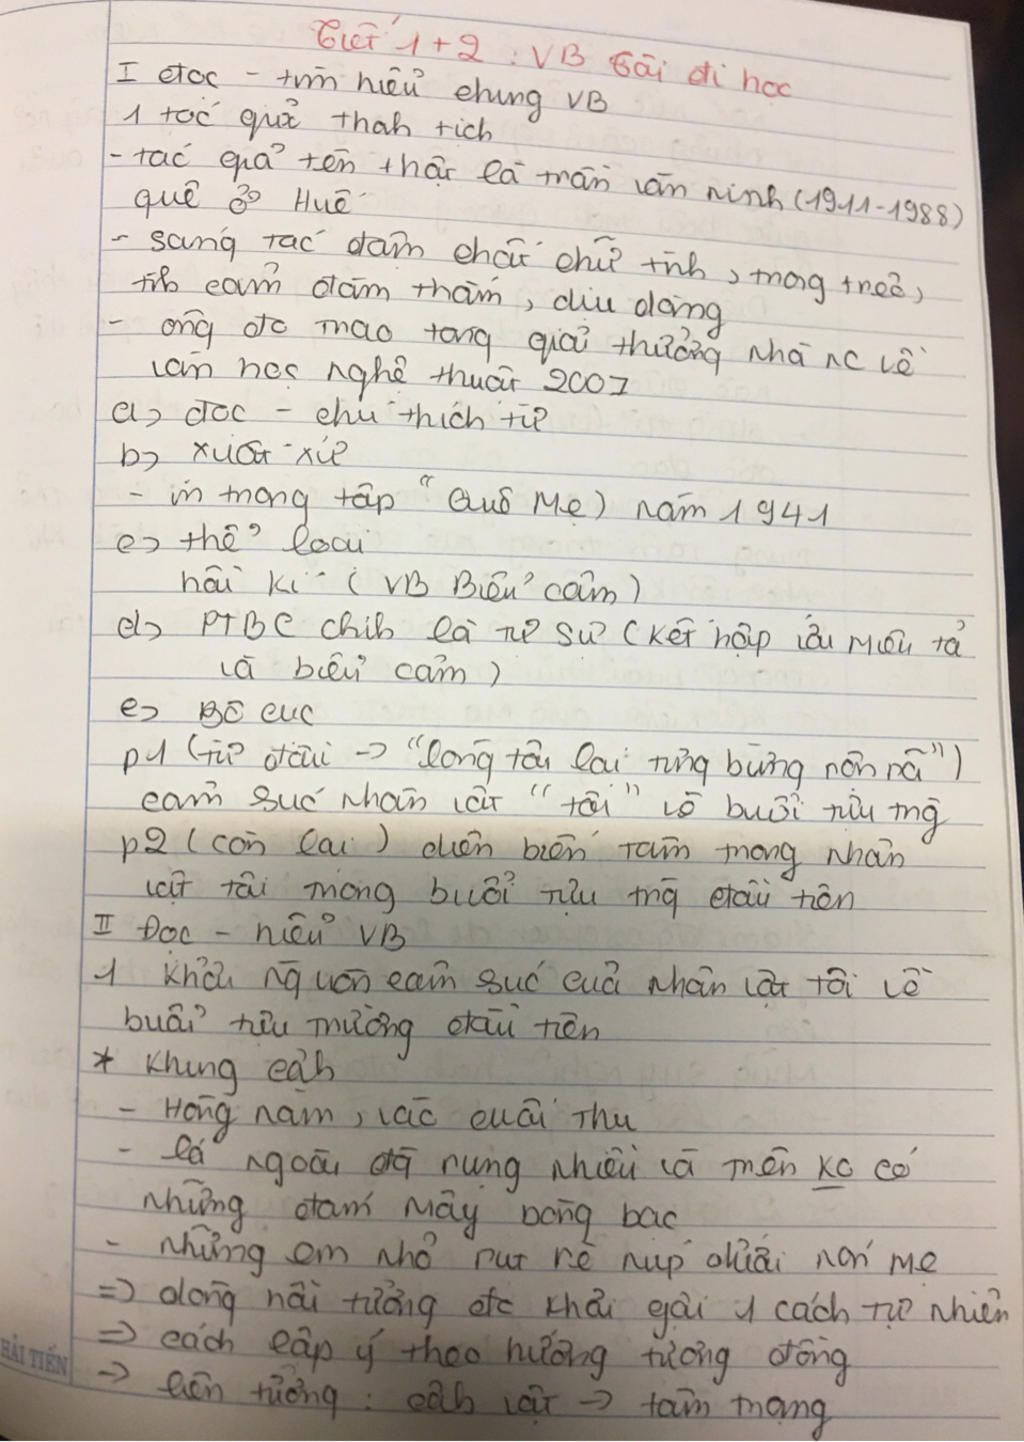 Tiết 1+2 : VB Tôi đi học
I đọc - tìm hiểu chung VB
1 tác giả thanh tịch
- tác giả tên thật là trần văn ninh (1911-1988)
quê ở Huế
- sang tác đậm chất chữ tình, trong trẻo,
tình cảm đằm thắm, dịu dàng
- ông đc trao tặng giải thưởng nhà nc về
văn học nghệ thuật 2007
a, đọc - chú thích từ
b, xuất xứ
- in trong tập "Quê Mẹ) năm 1941
c, thể loại
hồi kí (VB Biểu cảm)
d, PTBC chính là tự sự (kết hợp vs Miêu tả
và biểu cảm)
e, Bố cục
p1 (từ đầu -> "lòng tôi lại tưng bừng rộn rã")
cảm xúc nhân vật "tôi" về buổi tựu trg
p2 (còn lại) diễn biến tâm trạng nhân
vật tôi trong buổi tựu trg đầu tiên
II Đọc - hiểu VB
1 Khơi nguồn cảm xúc của nhân vật tôi về
buổi tựu trường đầu tiên
* Khung cảnh
- Hằng năm, vào cuối thu
- lá ngoài đg rụng nhiều và trên ko có
những đám mây bàng bạc
- những em nhỏ rụt rè núp dưới nón mẹ
=> dòng hồi tưởng đc khơi gợi 1 cách tự nhiên
=> cách lập ý theo hướng tương đồng
=> liên tưởng : cảnh vật -> tâm trạng
HẢI TIẾN